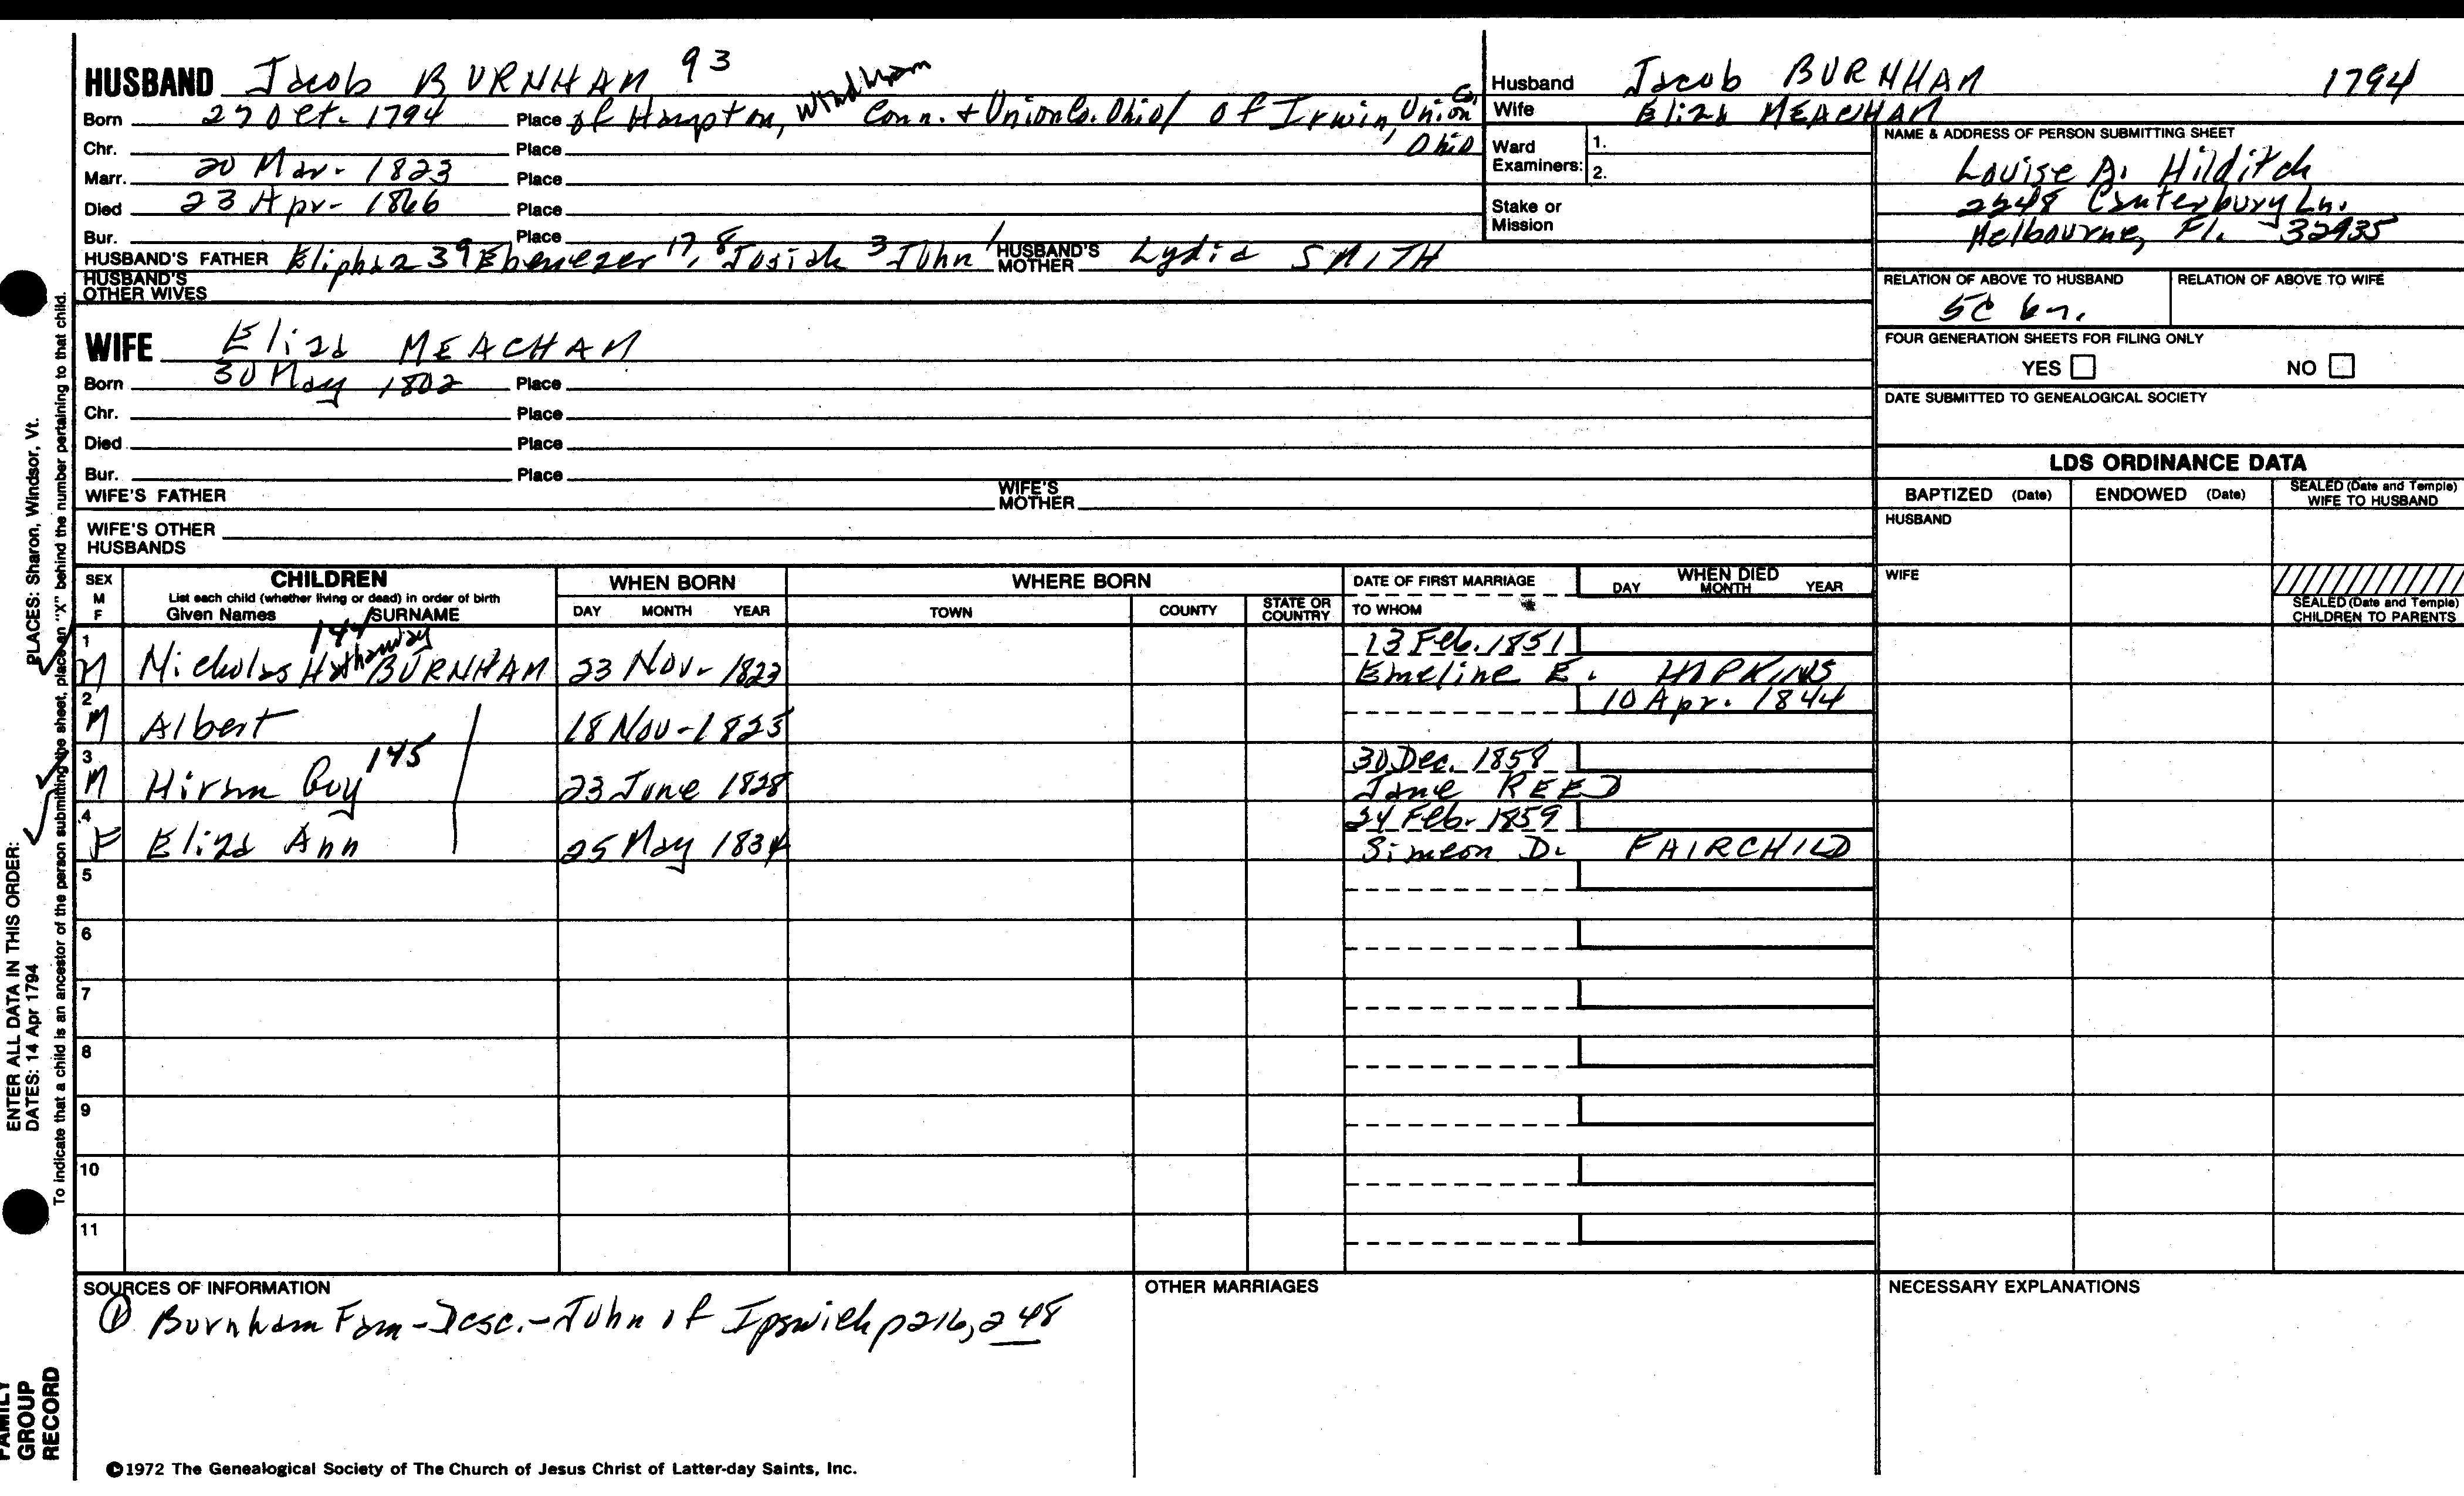 HUSBAND Jacob BURNHAM 93
Born 27 Oct. 1794 Place of Hampton, Windham Conn. + Union Co. Ohio/ of Irwin, Union Co., Ohio
Chr. Place
Marr. 20 Mar. 1823 Place
Died 23 Apr. 1866 Place
Bur. Place
HUSBAND'S FATHER Eliphaz 39 Ebenezer 17, 8 Josiah 3 John 1 HUSBAND'S MOTHER Lydia SMITH
HUSBAND'S OTHER WIVES
WIFE Eliza MEACHAM
Born 30 May 1802 Place
Chr. Place
Died Place
Bur. Place
WIFE'S FATHER WIFE'S MOTHER
WIFE'S OTHER HUSBANDS
Husband Jacob BURNHAM 1794
Wife Eliza MEACHAM
Ward Examiners: 1.
2.
Stake or Mission
NAME & ADDRESS OF PERSON SUBMITTING SHEET
Louise A. Hilditch
2248 Canterbury Ln.
Melbourne, Fl. 32935
RELATION OF ABOVE TO HUSBAND RELATION OF ABOVE TO WIFE
5C 6n.
FOUR GENERATION SHEETS FOR FILING ONLY
YES NO
DATE SUBMITTED TO GENEALOGICAL SOCIETY
LDS ORDINANCE DATA
BAPTIZED (Date) ENDOWED (Date) SEALED (Date and Temple) WIFE TO HUSBAND
HUSBAND
WIFE
SEALED (Date and Temple) CHILDREN TO PARENTS
SEX M F CHILDREN WHEN BORN WHERE BORN DATE OF FIRST MARRIAGE WHEN DIED
List each child (whether living or dead) in order of birth
Given Names SURNAME DAY MONTH YEAR TOWN COUNTY STATE OR COUNTRY TO WHOM DAY MONTH YEAR
1 144 13 Feb. 1851
M Nicholas Hathaway BURNHAM 23 Nov. 1823 Emeline E. HOPKINS
2 10 Apr. 1844
M Albert 18 Nov - 1825
3 145 30 Dec. 1858
M Hiram Guy 23 June 1828 Jane REED
4 24 Feb. 1859
F Eliza Ann 25 May 1834 Simeon D. FAIRCHILD
5
6
7
8
9
10
11
SOURCES OF INFORMATION OTHER MARRIAGES NECESSARY EXPLANATIONS
① Burnham Fam - Desc. - John of Ipswich p216, 248
©1972 The Genealogical Society of The Church of Jesus Christ of Latter-day Saints, Inc.
ENTER ALL DATA IN THIS ORDER:
DATES: 14 Apr 1794 PLACES: Sharon, Windsor, Vt.
To indicate that a child is an ancestor of the person submitting the sheet, place an "X" behind the number pertaining to that child.
FAMILY
GROUP
RECORD